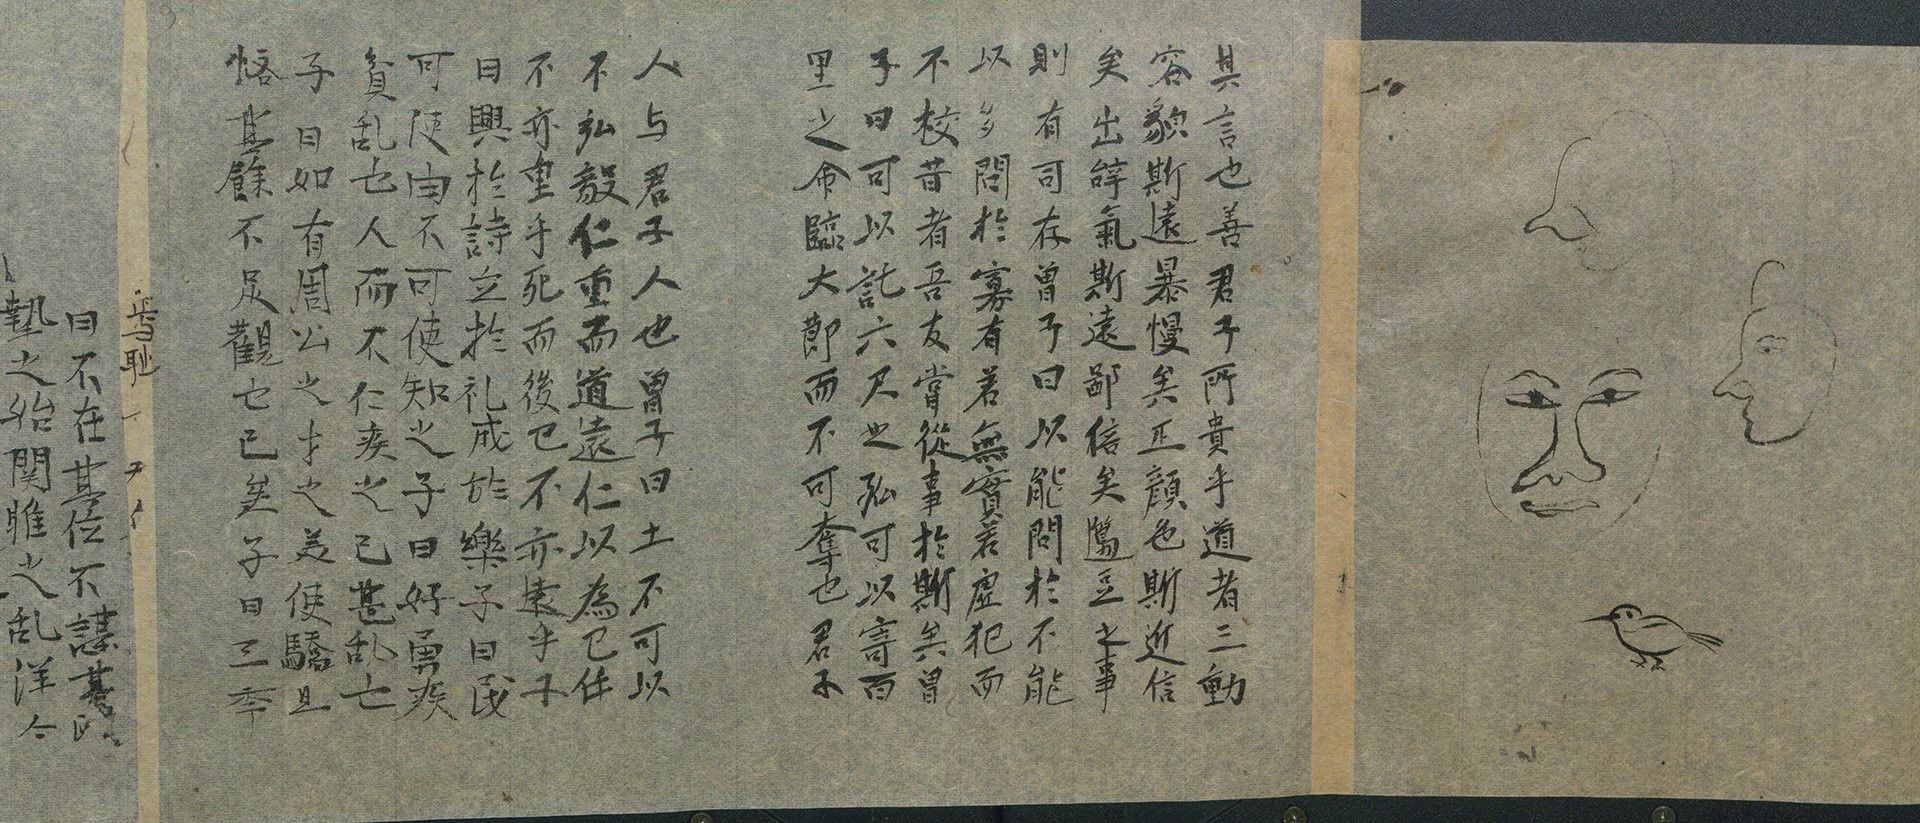 其言也善君子所貴乎道者三動
容貌斯遠暴慢矣正顔色斯近信
矣出辝氣斯遠鄙信矣籩豆之事
則有司存曽子曰以能問於不能
以多問於寡有若無實若虚犯而
不校昔者吾友嘗從事於斯矣曽
子曰可以託六尺之孤可以寄百
里之命臨大節而不可奪也君子
人与君子人也曽子曰士不可以
不弘毅仁重而道遠仁以為己任
不亦重乎死而後已不亦遠乎子
曰興於詩立於礼成於樂子曰民
可使由不可使知之子曰好勇疾
貧乱也人而不仁疾之已甚乱也
子曰如有周公之才之美使驕且
悋其餘不足觀也已矣子曰三年
耻
曰不在其位不謀其政
摯之始関雎之乱洋々